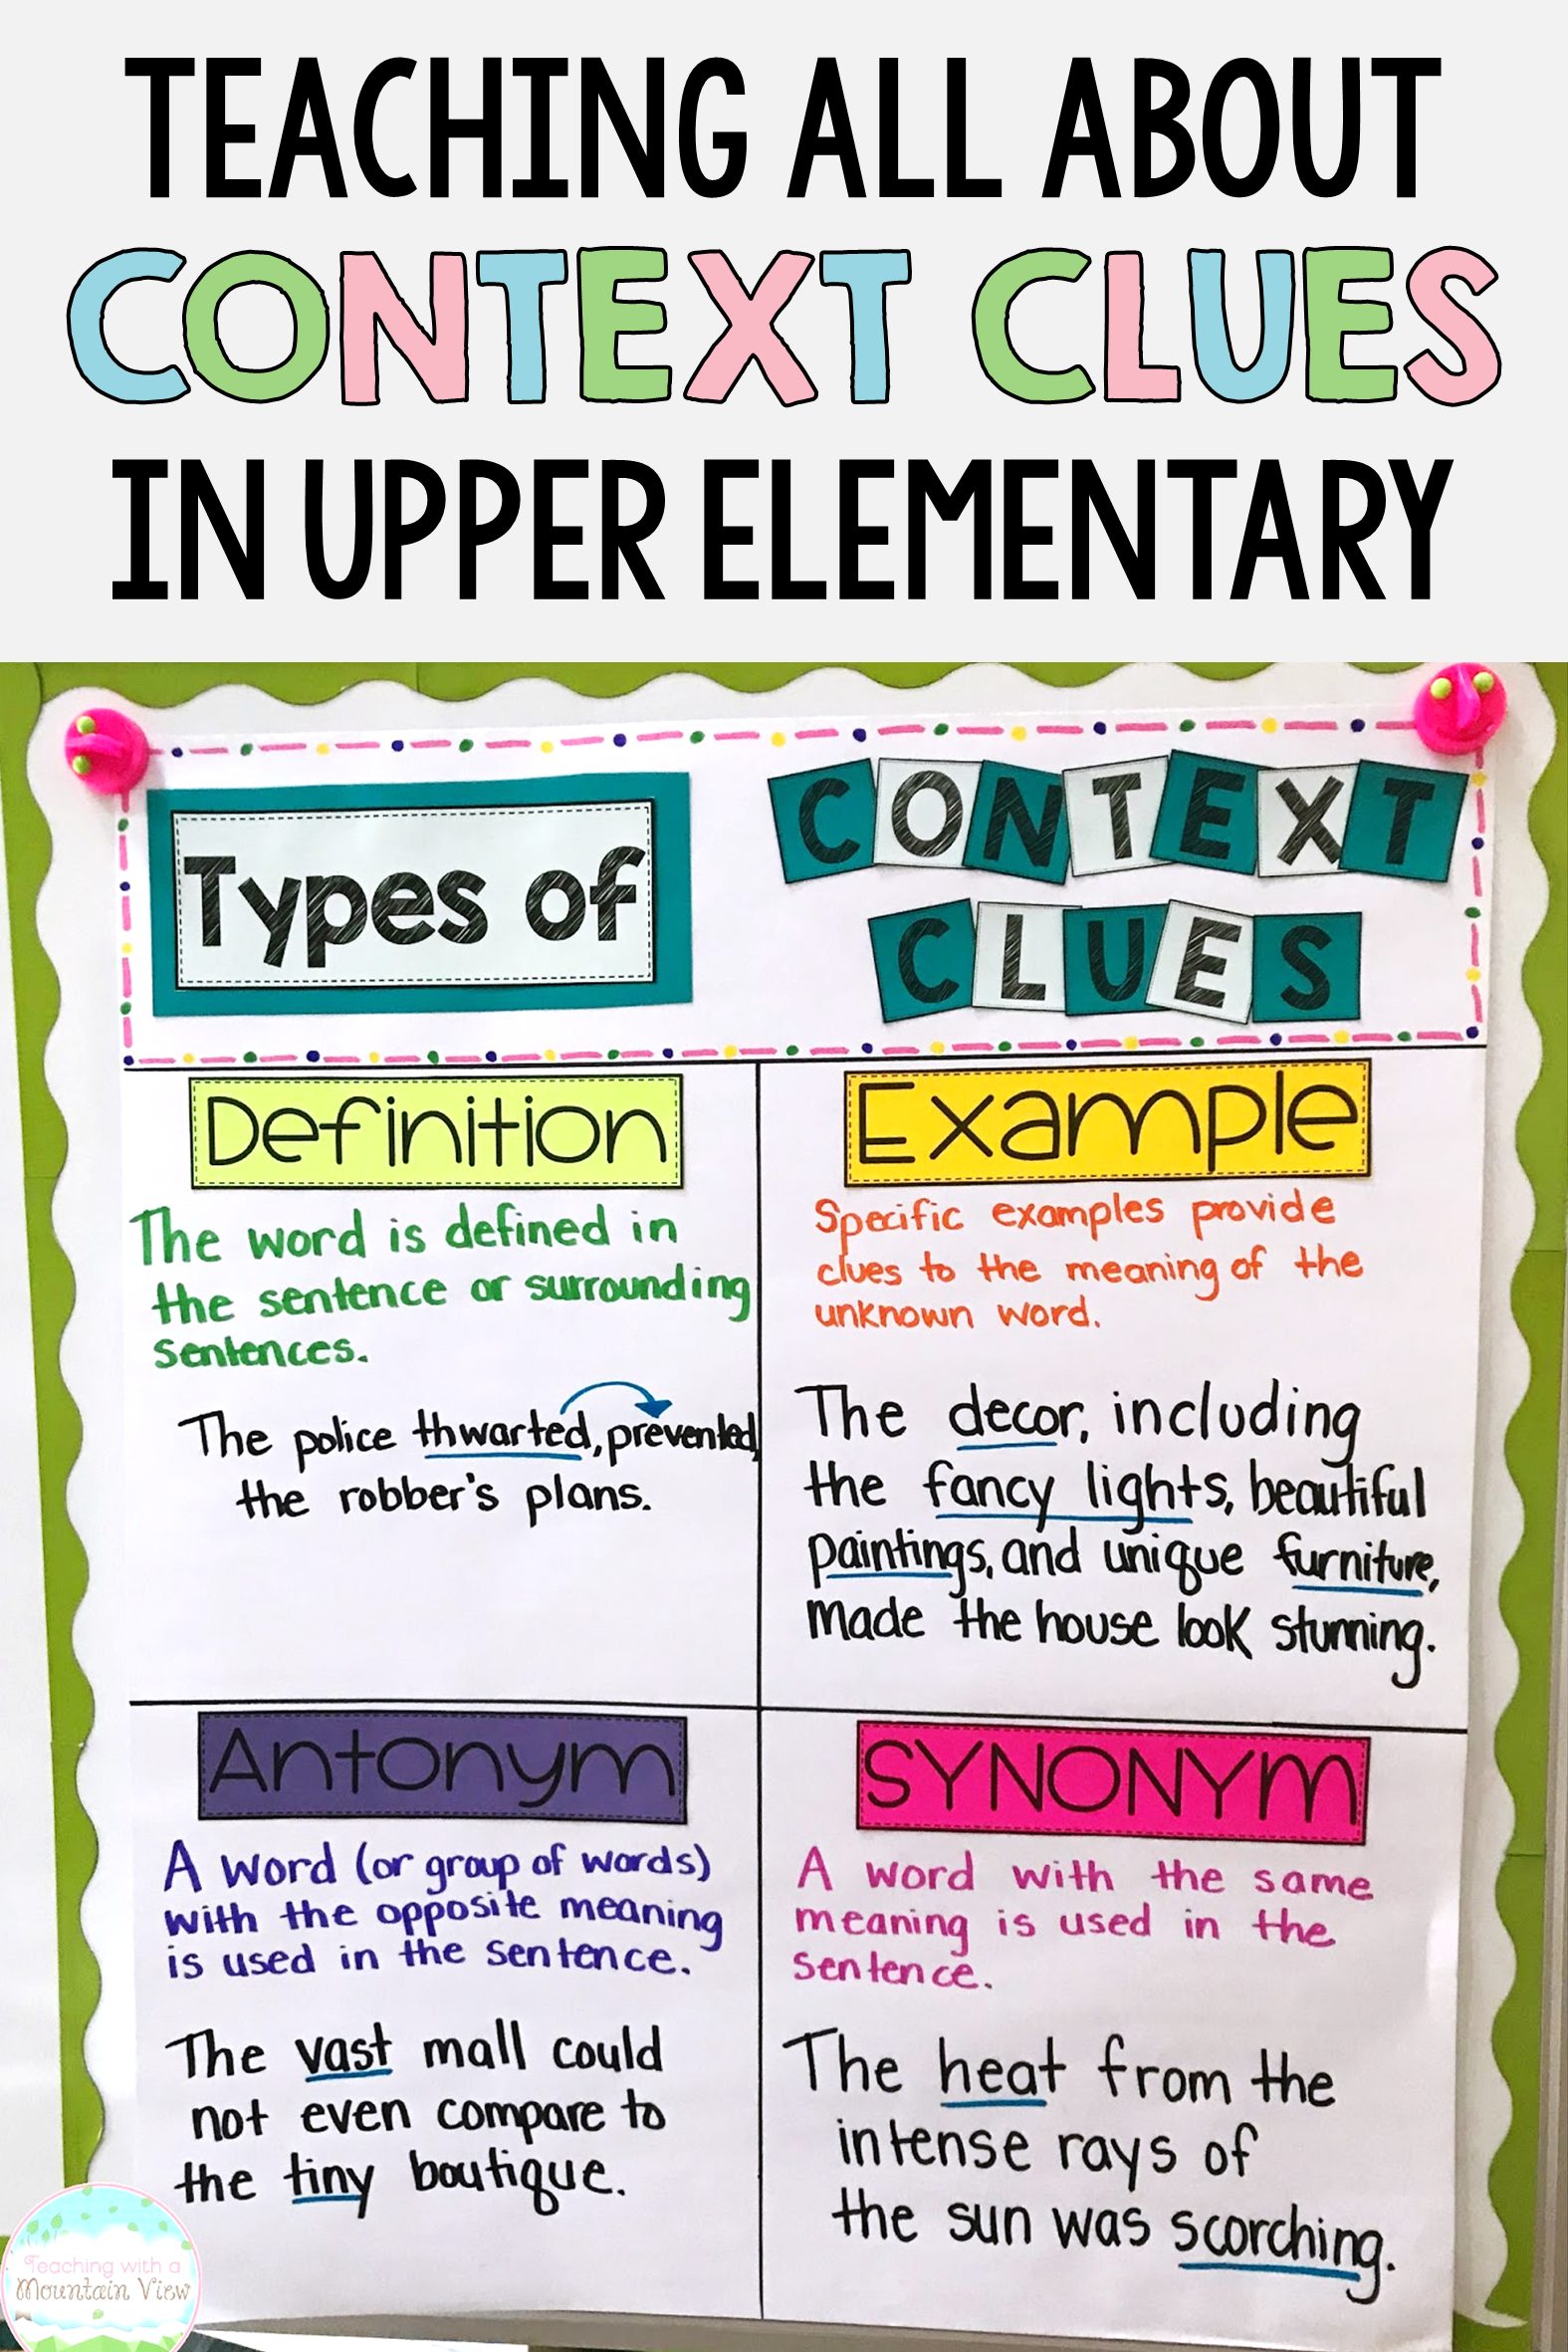 TEACHING ALL ABOUT
CONTEXT CLUES
IN UPPER ELEMENTARY
Types of
CONTEXT
CLUES
Definition
The word is defined in
the sentence or surrounding
sentences.
The police thwarted, prevented,
the robber's plans.
Example
Specific examples provide
clues to the meaning of the
unknown word.
The decor, including
the fancy lights, beautiful
paintings, and unique furniture,
made the house look stunning.
Antonym
A word (or group of words)
with the opposite meaning
is used in the sentence.
The vast mall could
not even compare to
the tiny boutique.
SYNONYm
A word with the same
meaning is used in the
sentence.
The heat from the
intense rays of
the sun was scorching.
Teaching with a
Mountain View